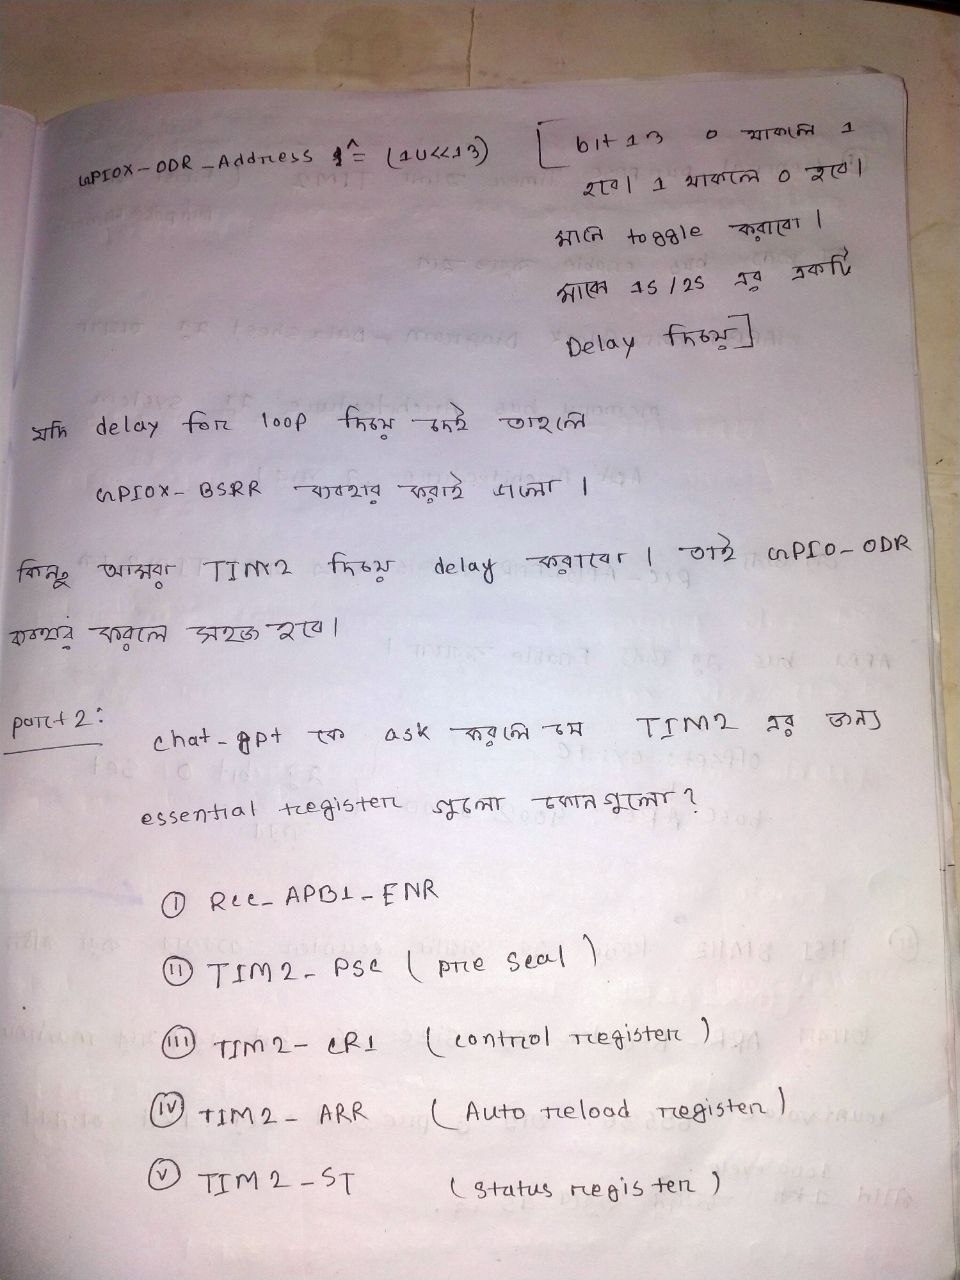 GPIOX-ODR-Address ^= (1U<<13) [ bit 13 0 থাকলে 1
হবে। 1 থাকলে 0 হবে।
মানে toggle করাবো।
মাঝে 1s/2s এর একটি
Delay দিয়ে]
যদি delay for loop দিয়ে দেই তাহলে
GPIOX-BSRR ব্যবহার করাই ভালো।
কিন্তু আমরা TIM2 দিয়ে delay করাবো। তাই GPIO-ODR
ব্যবহার করলে সহজ হবে।
part 2:
chat-gpt কে ask করলি যে TIM2 এর জন্য
essential register গুলো কোনগুলো?
(i) RCC-APB1-ENR
(ii) TIM2-PSC (pre scal)
(iii) TIM2-CR1 (control register)
(iv) TIM2-ARR (Auto reload register)
(v) TIM2-ST (status register)